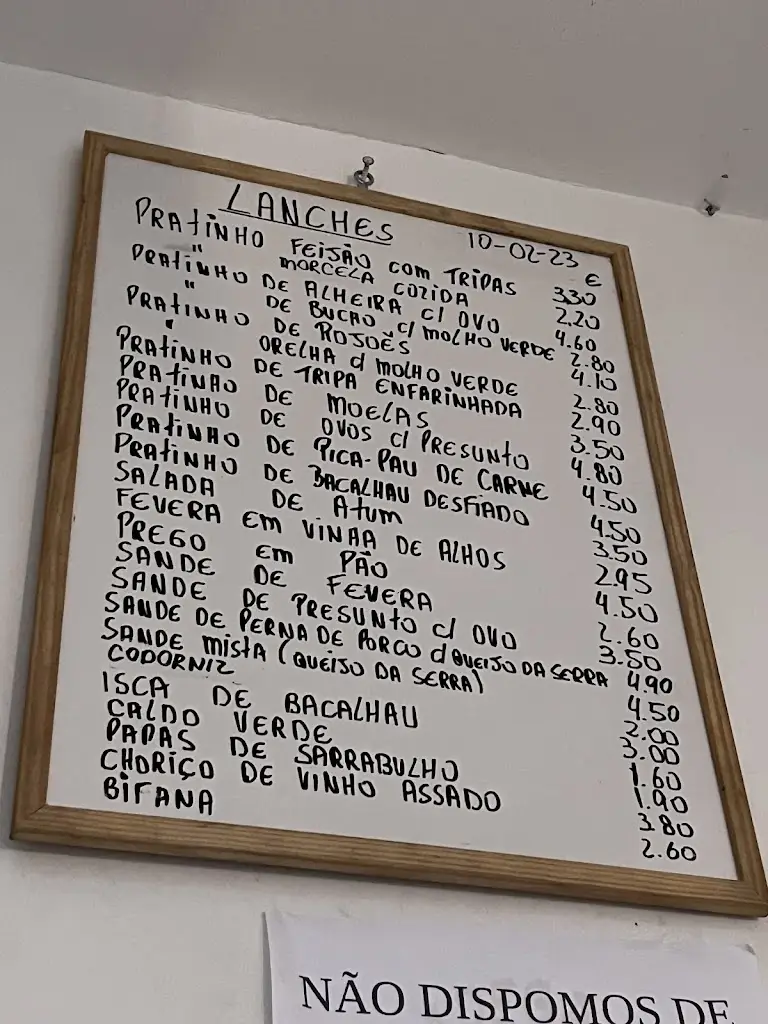 LANCHES 10-02-23 €
PRATINHO FEIJÃO COM TRIPAS 3.30
" MORCELA COZIDA 2.20
PRATINHO DE ALHEIRA C/ OVO 4.60
" DE BUCHO C/ MOLHO VERDE 2.80
PRATINHO DE ROJOÊS 4.10
" ORELHA C/ MOLHO VERDE 2.80
PRATINHO DE TRIPA ENFARINHADA 2.90
PRATINHO DE MOELAS 3.50
PRATINHO DE OVOS C/ PRESUNTO 4.80
PRATINHO DE PICA-PAU DE CARNE 4.50
PRATINHO DE BACALHAU DESFIADO 4.50
SALADA DE ATUM 3.50
FEVERA EM VINHA DE ALHOS 2.95
PREGO EM PÃO 4.50
SANDE DE FEVERA 2.60
SANDE DE PRESUNTO C/ OVO 3.50
SANDE DE PERNA DE PORCO C/ QUEIJO DA SERRA 4.90
SANDE MISTA (QUEIJO DA SERRA) 4.50
CODORNIZ 2.00
ISCA DE BACALHAU 3.00
CALDO VERDE 1.60
PAPAS DE SARRABULHO 1.90
CHORIÇO DE VINHO ASSADO 3.80
BIFANA 2.60
NÃO DISPOMOS DE